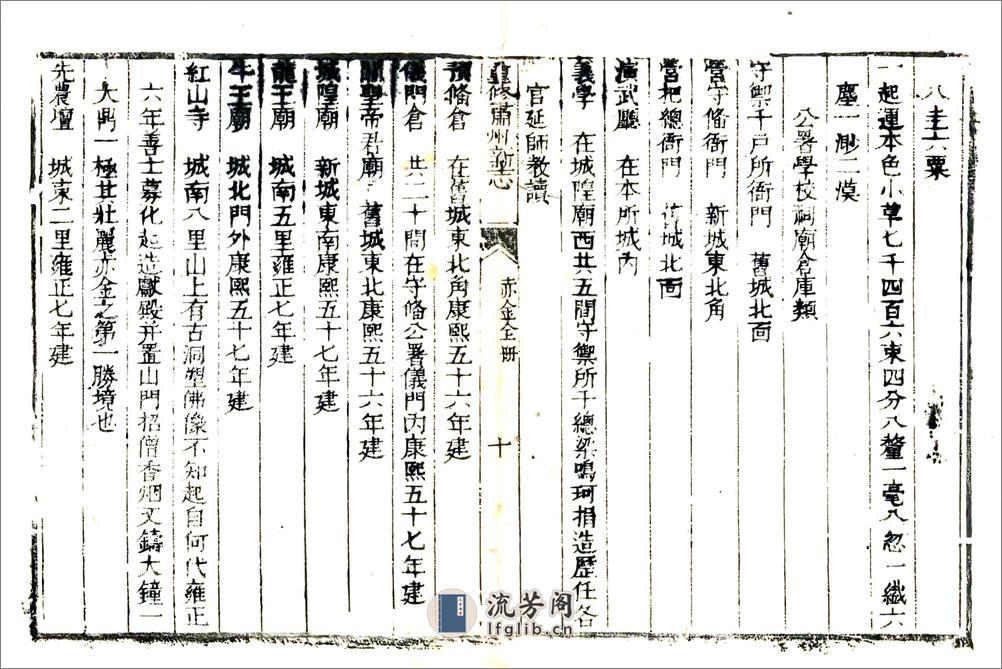 八圭六粟
一起運本色小草七千四百六束四分八釐一毫八忽一纖六
塵一渺二漠
公署學校祠廟倉庫類
守禦千戶所衙門 舊城北面
營守備衙門 新城東北角
營把總衙門 舊城北面
演武廳 在本所城內
義學 在城隍廟西共五間守禦所千總梁鳴珂捐造歷任各
官延師教讀
重修肅州新志 赤金全册 十
預備倉 在舊城東北角康熙五十六年建
儀門倉 共二十間在守備公署儀門內康熙五十七年建
關聖帝君廟 舊城東北康熙五十六年建
城隍廟 新城東南康熙五十七年建
龍王廟 城南五里雍正七年建
牛王廟 城北門外康熙五十七年建
紅山寺 城南八里山上有古洞塑佛像不知起自何代雍正
六年善士募化起造獻殿并置山門招僧香烟又鑄大鐘一
大鼎一極其壯麗亦金之第一勝境也
先農壇 城東二里雍正七年建
流芳阁
lfglib.cn